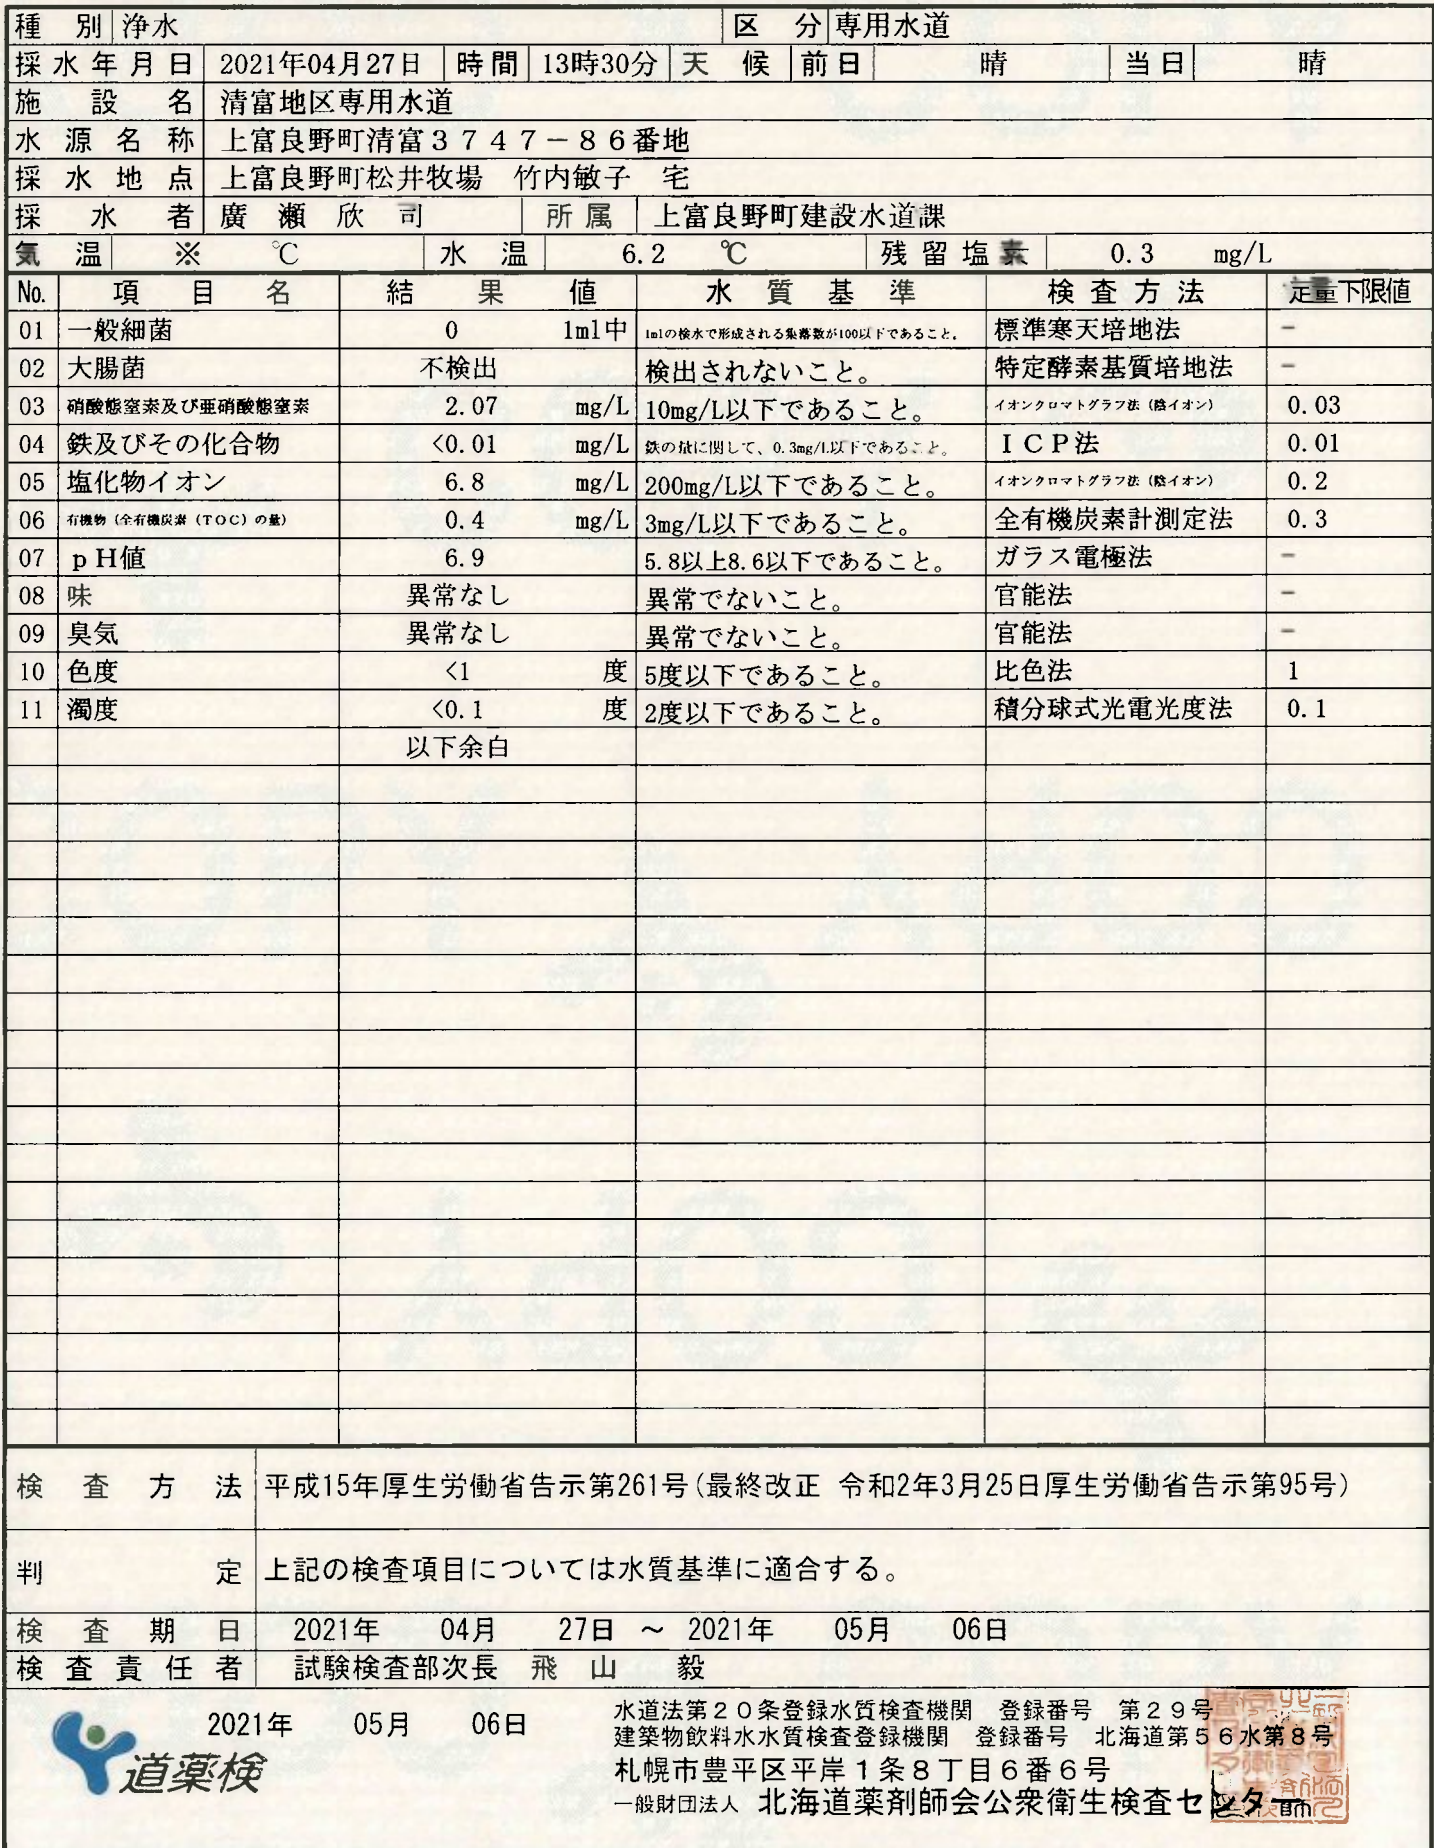 種別 浄水 区分 専用水道
採水年月日 2021年04月27日 時間 13時30分 天候 前日 晴 当日 晴
施設名 清富地区専用水道
水源名称 上富良野町清富３７４７－８６番地
採水地点 上富良野町松井牧場 竹内敏子 宅
採水者 廣瀬欣司 所属 上富良野町建設水道課
気温 ※ ℃ 水温 6.2 ℃ 残留塩素 0.3 mg/L
No. 項目名 結果値 水質基準 検査方法 定量下限値
01 一般細菌 0 1ml中 1mlの検水で形成される集落数が100以下であること。 標準寒天培地法 －
02 大腸菌 不検出 検出されないこと。 特定酵素基質培地法 －
03 硝酸態窒素及び亜硝酸態窒素 2.07 mg/L 10mg/L以下であること。 イオンクロマトグラフ法（陰イオン） 0.03
04 鉄及びその化合物 <0.01 mg/L 鉄の量に関して、0.3mg/L以下であること。 ＩＣＰ法 0.01
05 塩化物イオン 6.8 mg/L 200mg/L以下であること。 イオンクロマトグラフ法（陰イオン） 0.2
06 有機物（全有機炭素（ＴＯＣ）の量） 0.4 mg/L 3mg/L以下であること。 全有機炭素計測定法 0.3
07 ｐＨ値 6.9 5.8以上8.6以下であること。 ガラス電極法 －
08 味 異常なし 異常でないこと。 官能法 －
09 臭気 異常なし 異常でないこと。 官能法 －
10 色度 <1 度 5度以下であること。 比色法 1
11 濁度 <0.1 度 2度以下であること。 積分球式光電光度法 0.1
以下余白
検査方法 平成15年厚生労働省告示第261号(最終改正 令和2年3月25日厚生労働省告示第95号)
判定 上記の検査項目については水質基準に適合する。
検査期日 2021年 04月 27日 ～ 2021年 05月 06日
検査責任者 試験検査部次長 飛山 毅
2021年 05月 06日
道薬検
水道法第２０条登録水質検査機関 登録番号 第２９号
建築物飲料水水質検査登録機関 登録番号 北海道第５６水第８号
札幌市豊平区平岸１条８丁目６番６号
一般財団法人 北海道薬剤師会公衆衛生検査センター